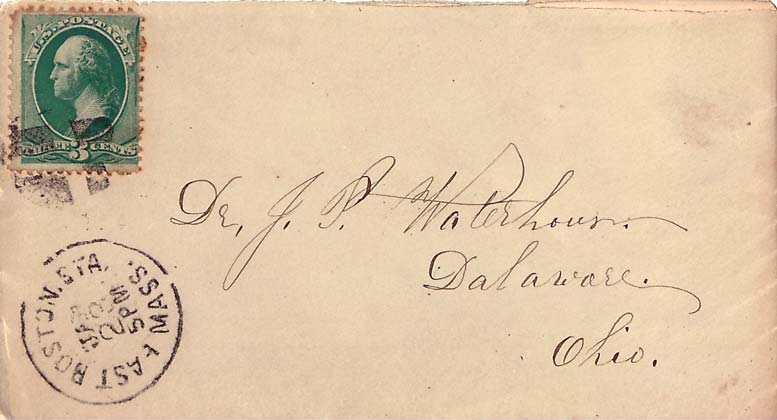 U.S. POSTAGE
THREE 3 CENTS
Dr. J. P. Waterhouse
Dalaware.
Ohio.
EAST BOSTON. STA. MASS.
5 PM